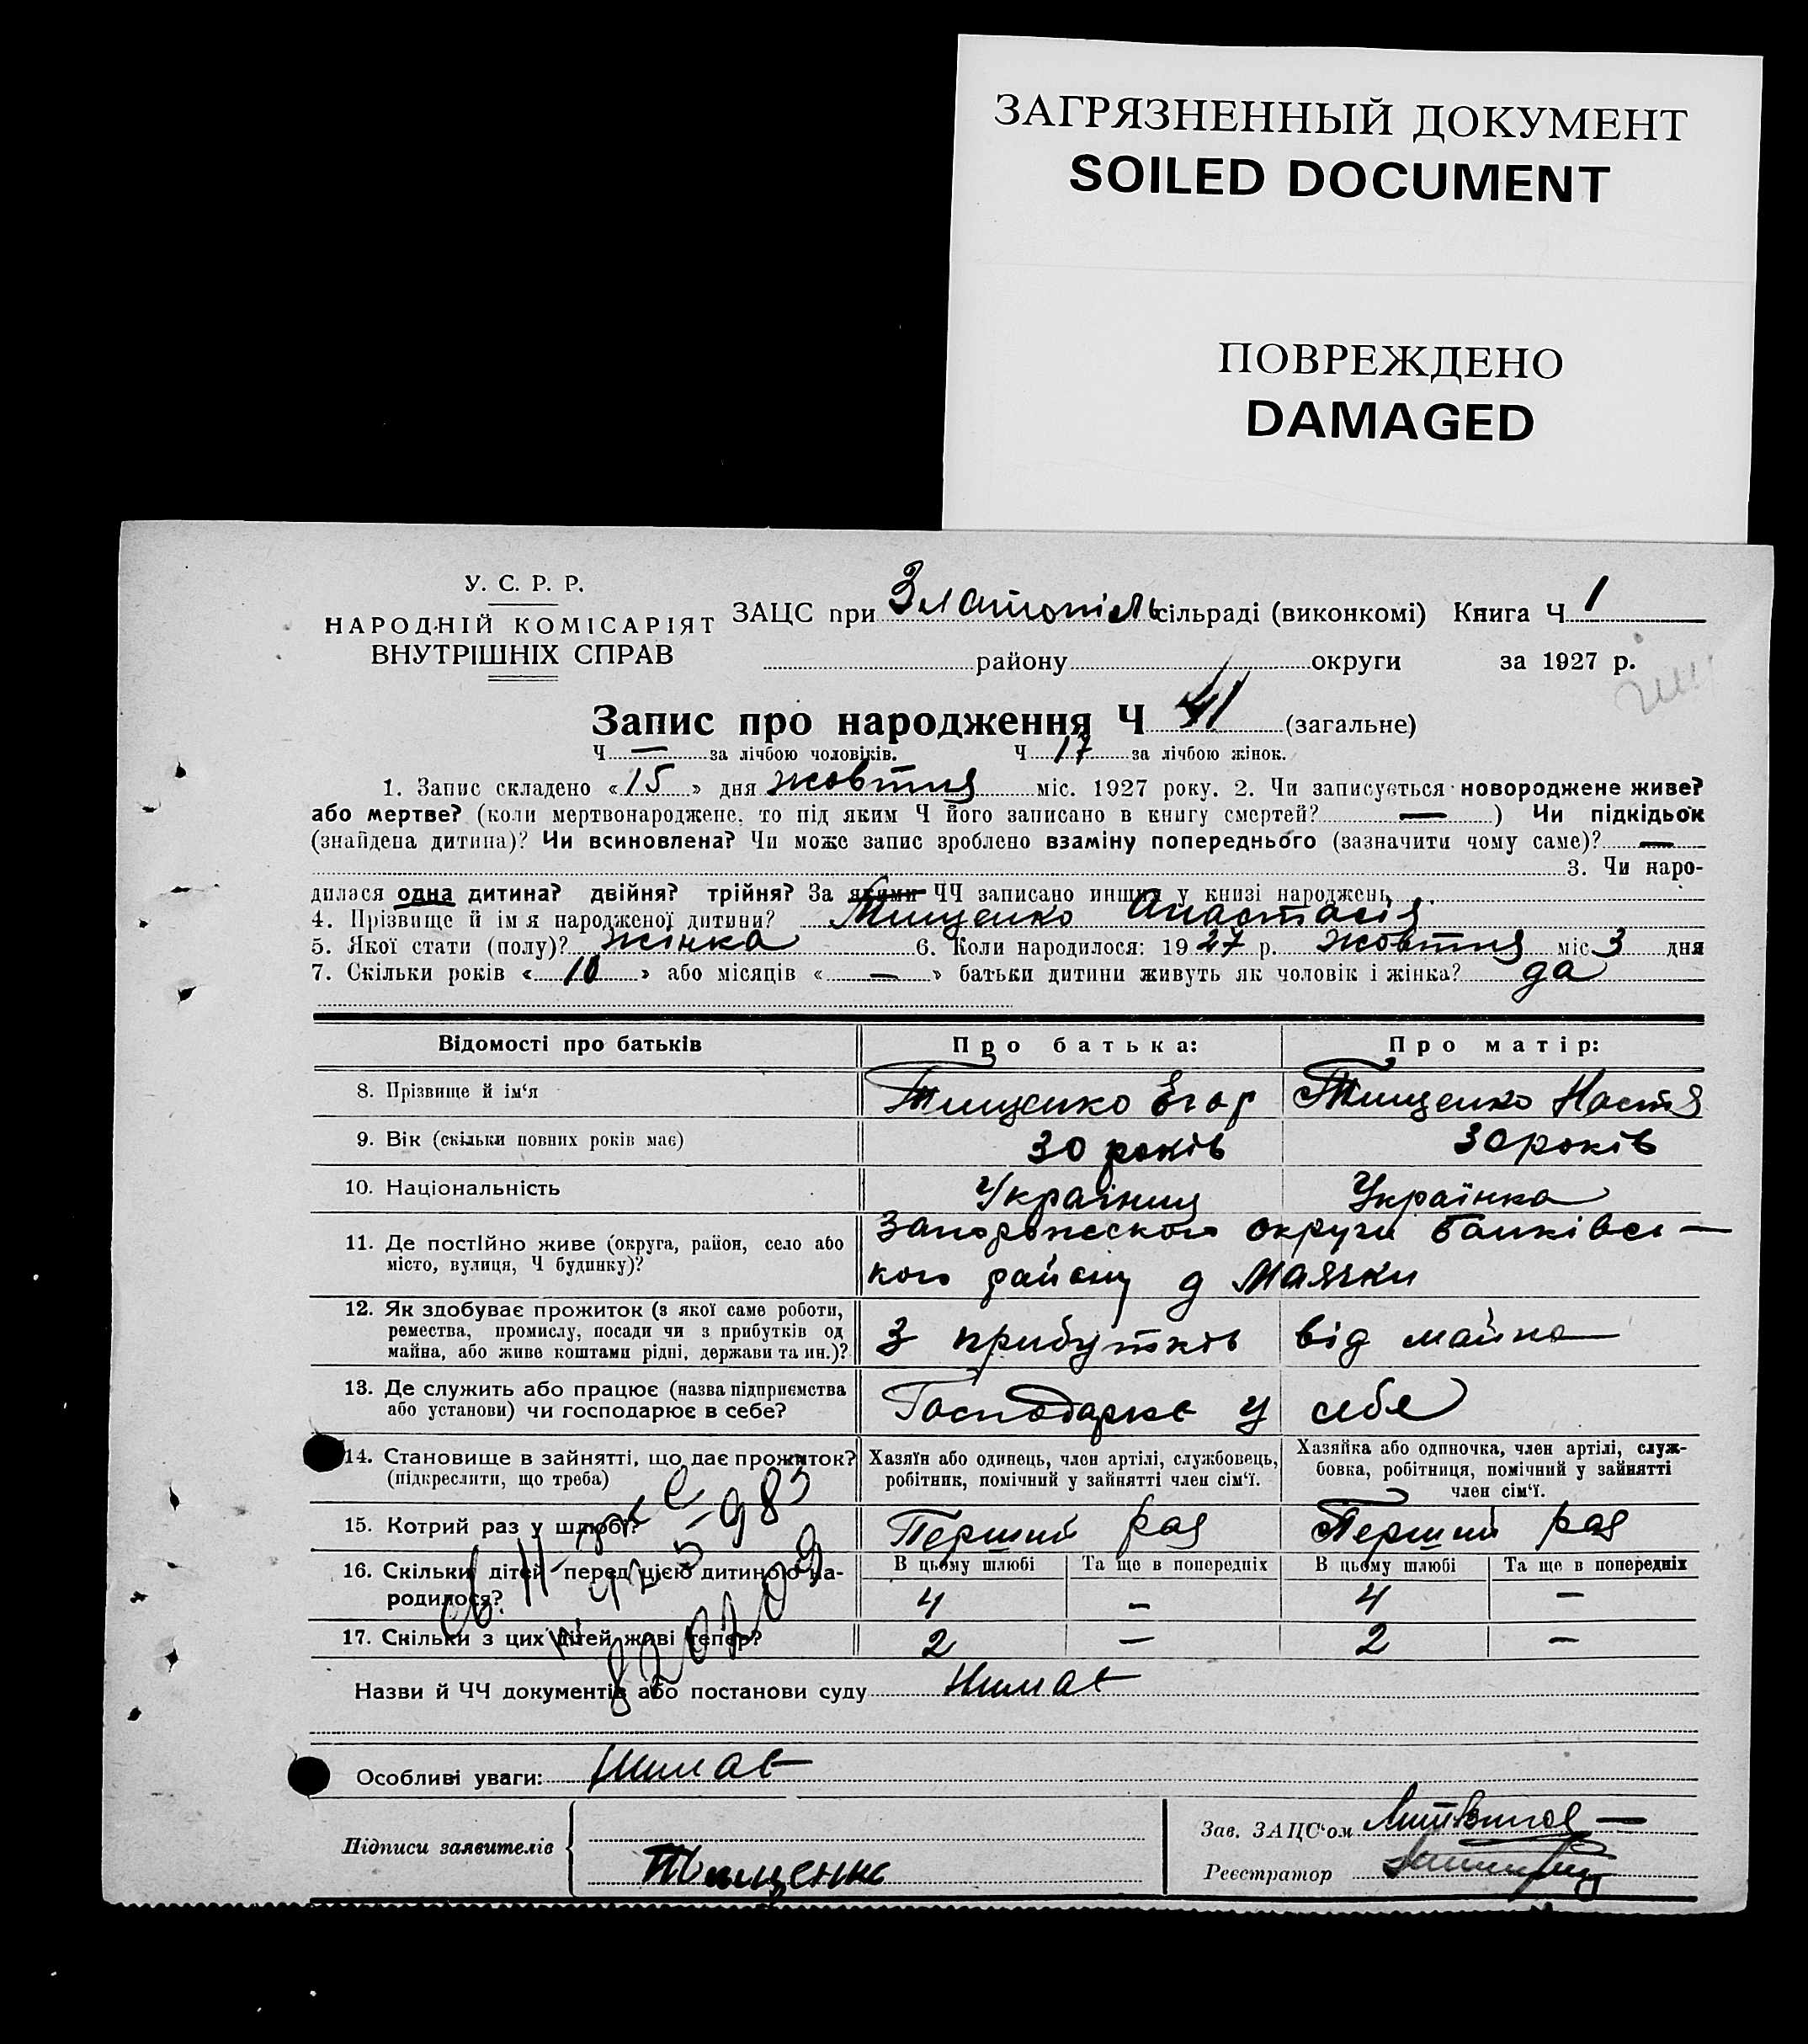 ЗАГРЯЗНЕННЫЙ ДОКУМЕНТ
SOILED DOCUMENT
ПОВРЕЖДЕНО
DAMAGED
У. С. Р. Р.
НАРОДНІЙ КОМІСАРІЯТ
ВНУТРІШНІХ СПРАВ
ЗАЦС при Златопіль сільраді (виконкомі) Книга Ч 1
району округи за 1927 р.
Запис про народження Ч 41 (загальне)
Ч — за лічбою чоловіків. Ч 17 за лічбою жінок.
1. Запис складено «15» дня жовтня міс. 1927 року. 2. Чи записується новороджене живе?
або мертве? (коли мертвонароджене, то під яким Ч його записано в книгу смертей? — ) Чи підкідьок
(знайдена дитина)? Чи всиновлена? Чи може запис зроблено взаміну попереднього (зазначити чому саме)? —
3. Чи наро-
дилася одна дитина? двійня? трійня? За якими ЧЧ записано инших у книзі народжень
4. Прізвище й ім я народженої дитини? Тищенко Анастасія
5. Якої стати (полу)? жінка 6. Коли народилося: 1927 р. жовтня міс 3 дня
7. Скільки років «10» або місяців « — » батьки дитини живуть як чоловік і жінка? да
Відомості про батьків Про батька: Про матір:
8. Прізвище й ім‘я Тищенко Егор Тищенко Настя
9. Вік (скільки повних років має) 30 років 30 років
10. Національність Українец Українка
11. Де постійно живе (округа, район, село або
місто, вулиця, Ч будинку)?
Запорожеского округи
кого району д Маячки
12. Як здобуває прожиток (з якої саме роботи,
ремества, промислу, посади чи з прибутків од
майна, або живе коштами рідні, держави та ин.)?
З прибутків від майна
13. Де служить або працює (назва підприємства
або установи) чи господарює в себе?
Господарює у себе
14. Становище в зайнятті, що дає прожиток?
(підкреслити, що треба)
Хазяїн або одинець, член артілі, службовець,
робітник, помічний у зайнятті член сім‘ї.
Хазяйка або одиночка, член артілі, служ-
бовка, робітниця, помічний у зайнятті
член сім‘ї.
15. Котрий раз у шлюбі? Перший раз Перший раз
16. Скільки дітей перед цією дитиною на-
родилося?
В цьому шлюбі Та ще в попередніх В цьому шлюбі Та ще в попередніх
4 — 4 —
17. Скільки з цих дітей живі тепер? 2 — 2 —
Назви й ЧЧ документів або постанови суду Нимає
Особливі уваги: Нимає
Підписи заявителів
Тищенко
Зав. ЗАЦС‘ом
Реєстратор